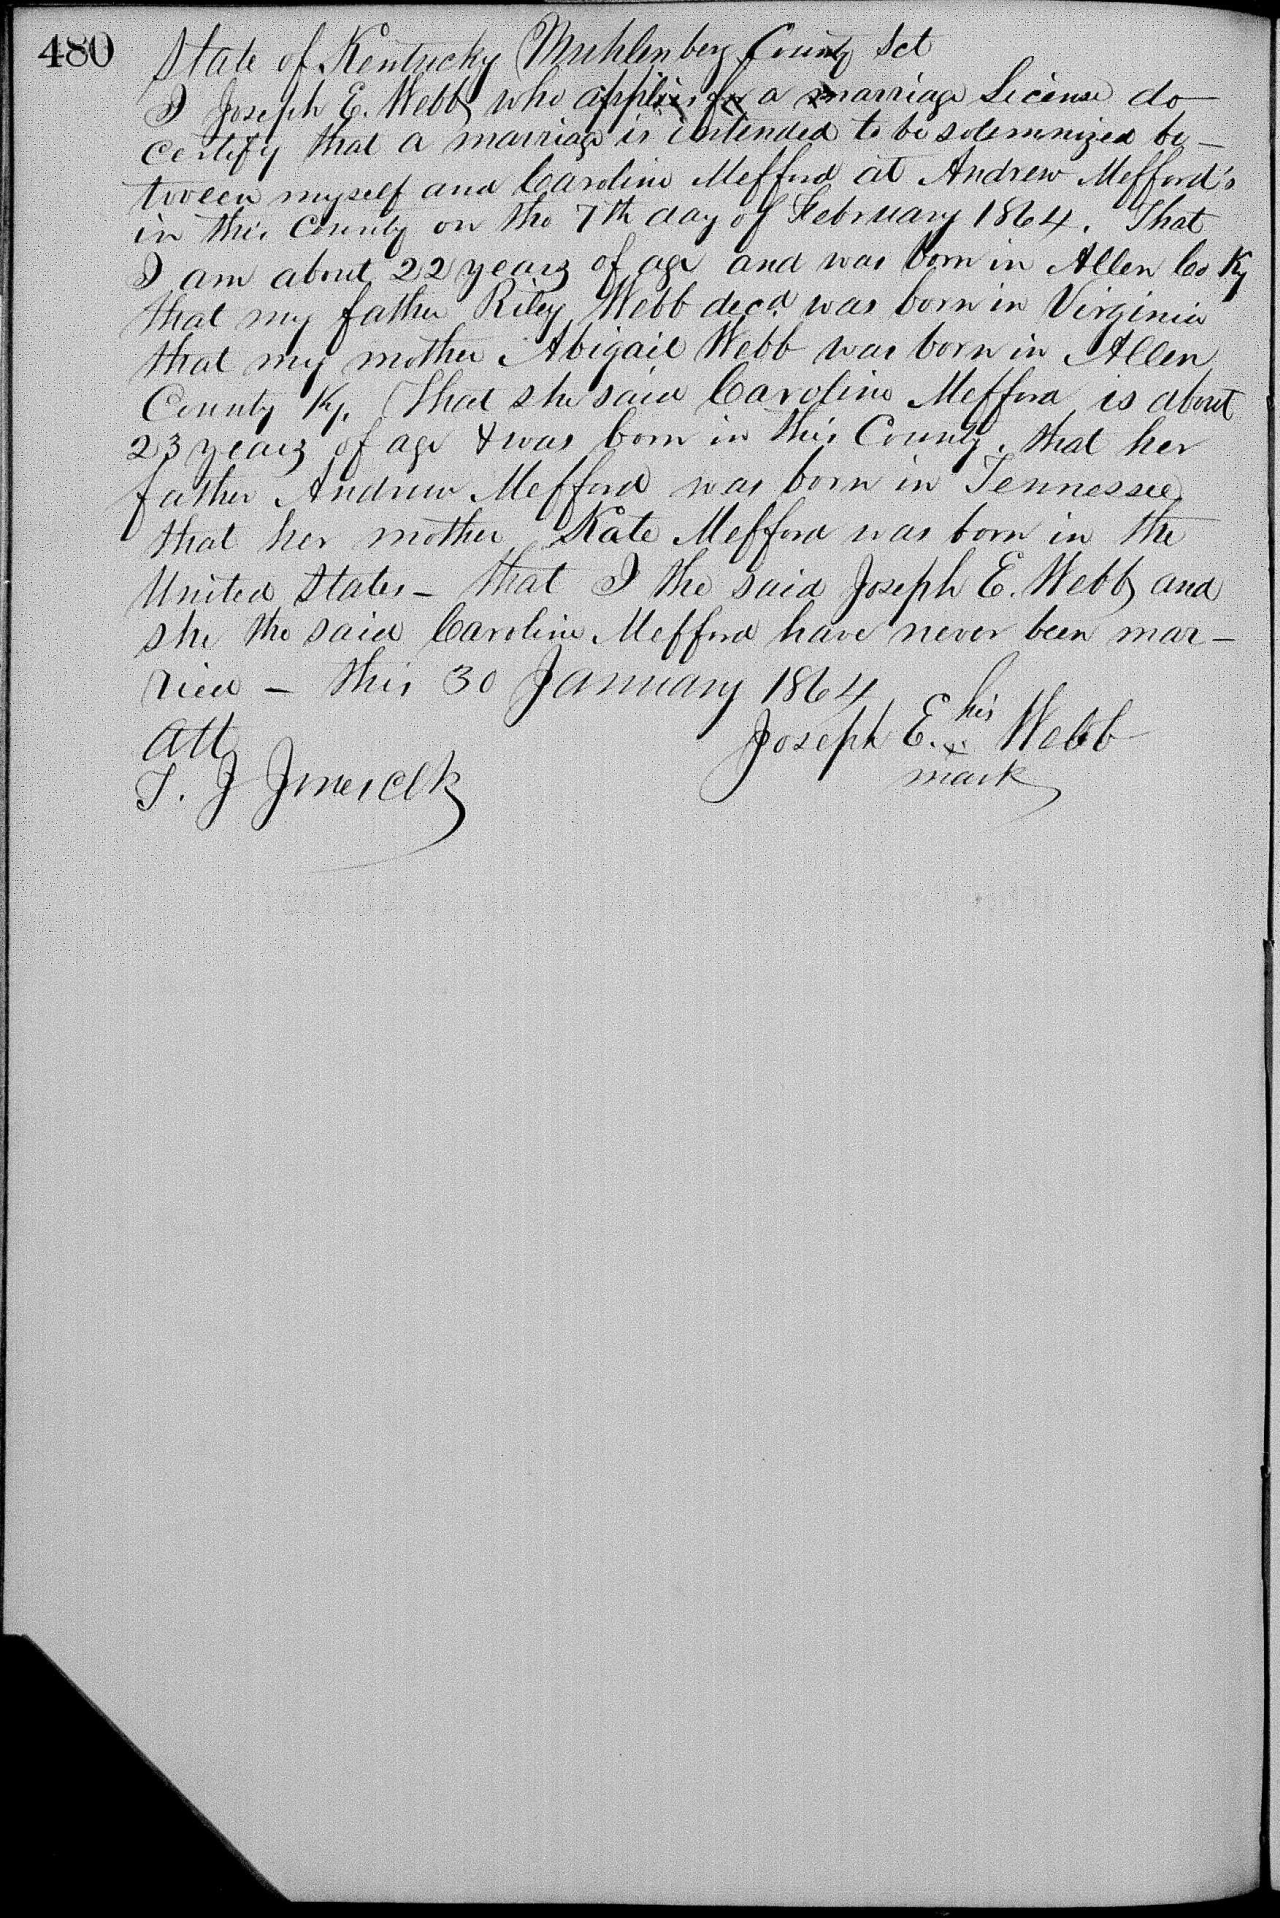 480
State of Kentucky Muhlenberg County Sct
I Joseph E. Webb who applies for a marriage License do
certify that a marriage is intended to be solemnized be-
tween myself and Caroline Mefford at Andrew Mefford's
in this County on the 7th day of February 1864. That
I am about 22 years of age and was born in Allen Co Ky
that my father Riley Webb decd was born in Virginia
that my mother Abigail Webb was born in Allen
County Ky. That she said Caroline Mefford is about
23 years of age & was born in this County, that her
father Andrew Mefford was born in Tennessee,
that her mother Kate Mefford was born in the
United States - that I the said Joseph E. Webb and
she the said Caroline Mefford have never been mar-
ried - this 30 January 1864
Att
Joseph E. his x mark Webb
T. J Jones clk